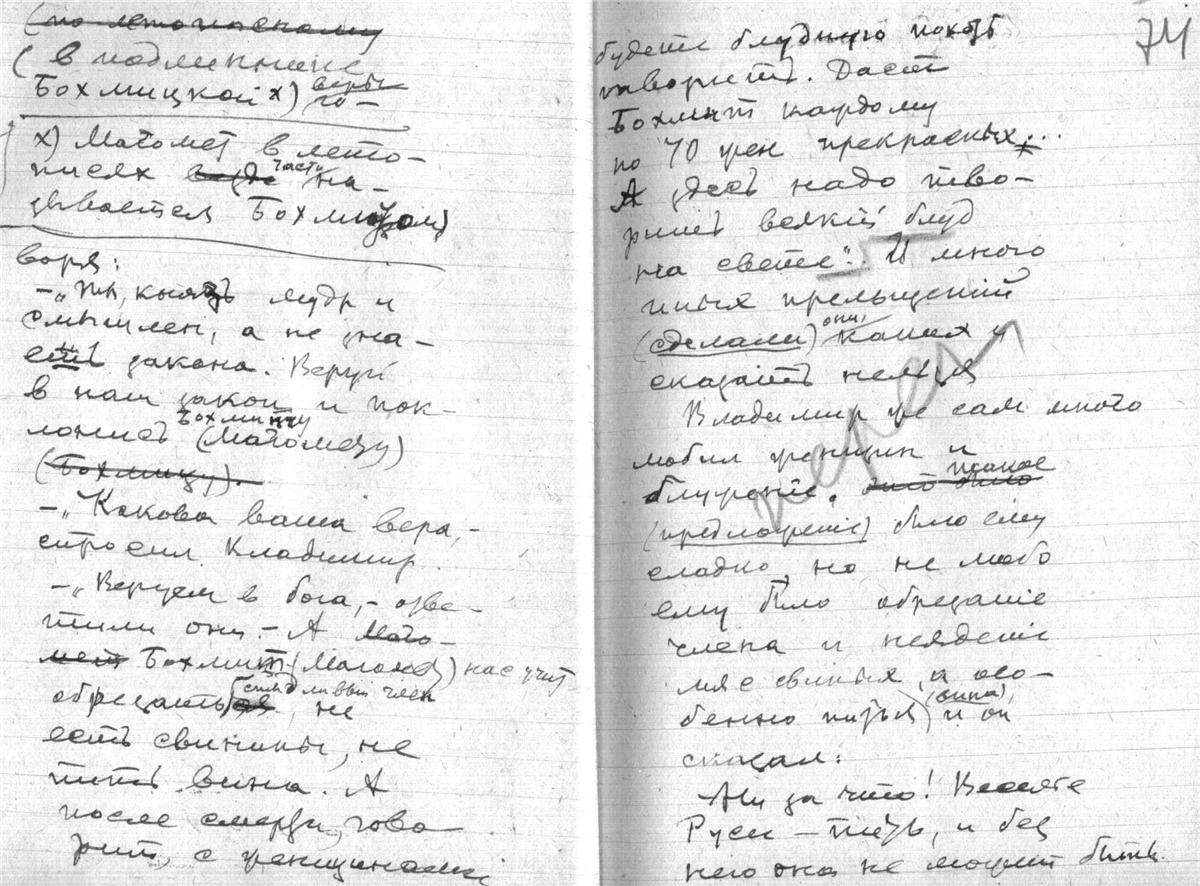 (по летописному
(в подлиннике
Бохмицкой х) веры
го-
х) Магомет в лето-
писях часто на-
зывается Бохмитом)
воря:
-„Ты, князь мудр и
смышлен, а не зна-
ешь закона. Веруй
в наш закон и пок-
Бохмиту
лонись (Магомету)
(Бохмицу).
-„Какова ваша вера,-
спросил Владимир
-„Веруем в бога,- отве-
тили они.- А Маго-
мет Бохмит (Магомет) нас учит
стыдливый член
обрезать, не
есть свинины, не
пить вина. А
после смерти, гово
рит, с женщинами
74
будете блудную похоть
творить. Даст
Бохмит каждому
по 70 жен прекрасных...
А здесь надо тво-
рить всякий блуд
на свете". И много
иных прельщений
они,
(сделали) каких и
сказать нельзя
Владимир же сам много
любил женщин и
блужение. такое
(предложение) было ему
сладко, но не любо
ему было обрезание
члена и неядение
мяс свиных, а осо-
(вина)
бенно питья и он
сказал:
Ни за что! Веселье
Руси — пить, и без
него она не может быть.